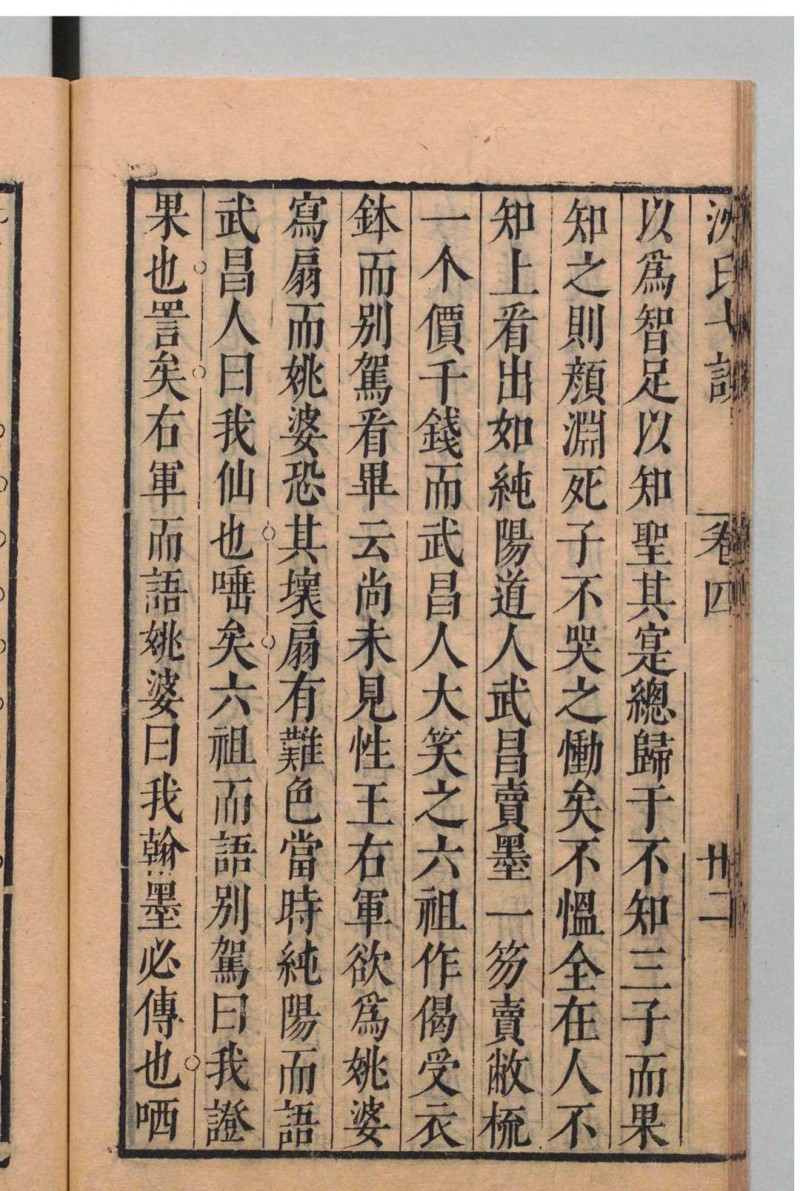 卷四 廿二
以爲智足以知聖其寔總歸于不知三子而果
知之則顏淵死子不哭之慟矣不慍全在人不
知上看出如純陽道人武昌賣墨一笏賣敝梳
一个價千錢而武昌人大笑之六祖作偈受衣
鉢而别駕看畢云尚未見性王右軍欲爲姚婆
寫扇而姚婆恐其壞扇有難色當時純陽而語
武昌人曰我仙也唾矣六祖而語别駕曰我證
果也詈矣右軍而語姚婆曰我翰墨必傳也哂